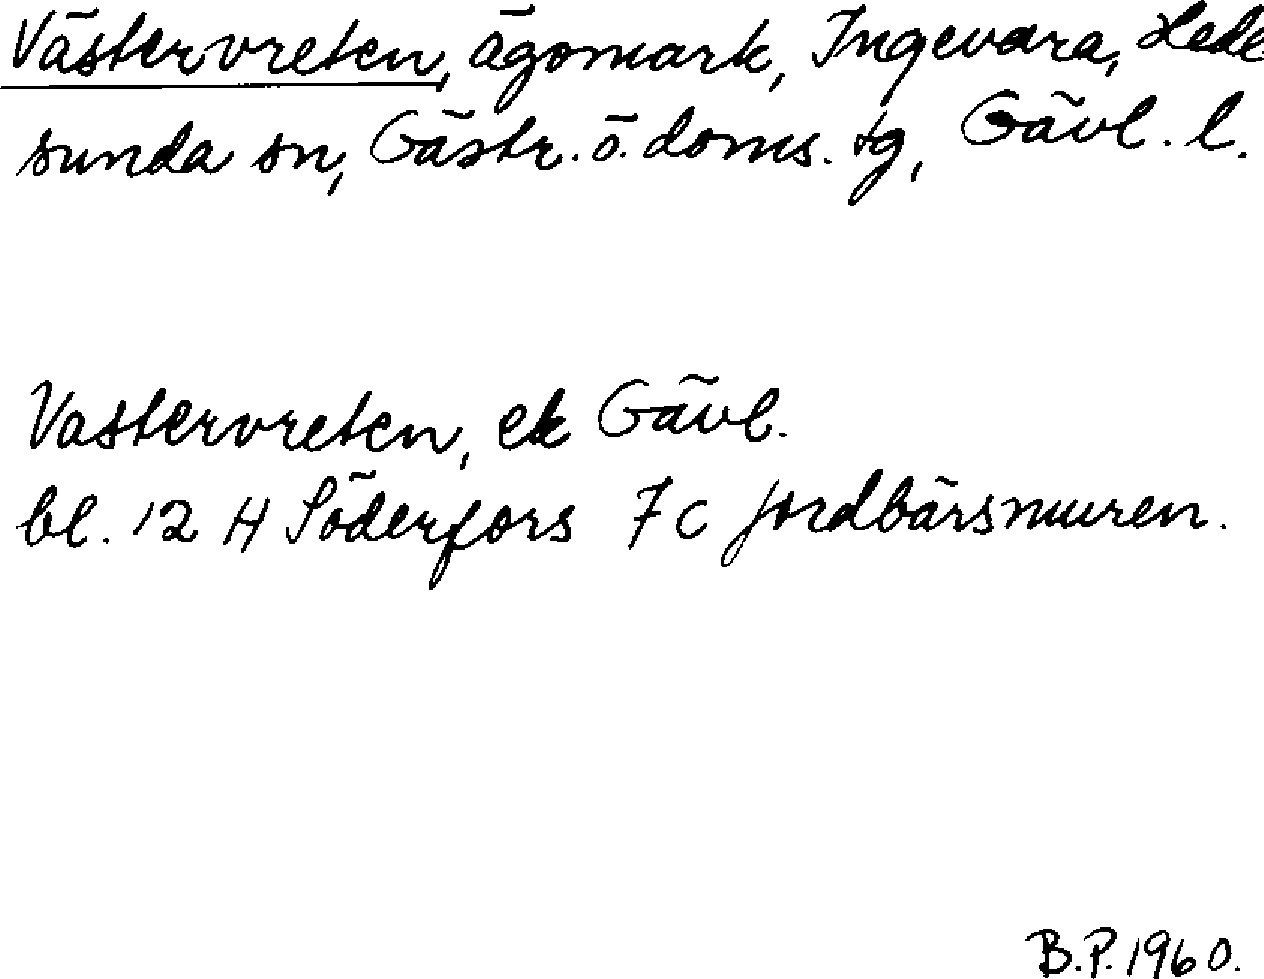 Västervreten, ägomark, Ingevara, Hede
sunda sn, Gästr. ö. doms. tg, Gävl. l.
Vastervreten, ek Gävl.
bl. 12 H Söderfors 7 c Jordbärsmuren.
B.P. 1960.